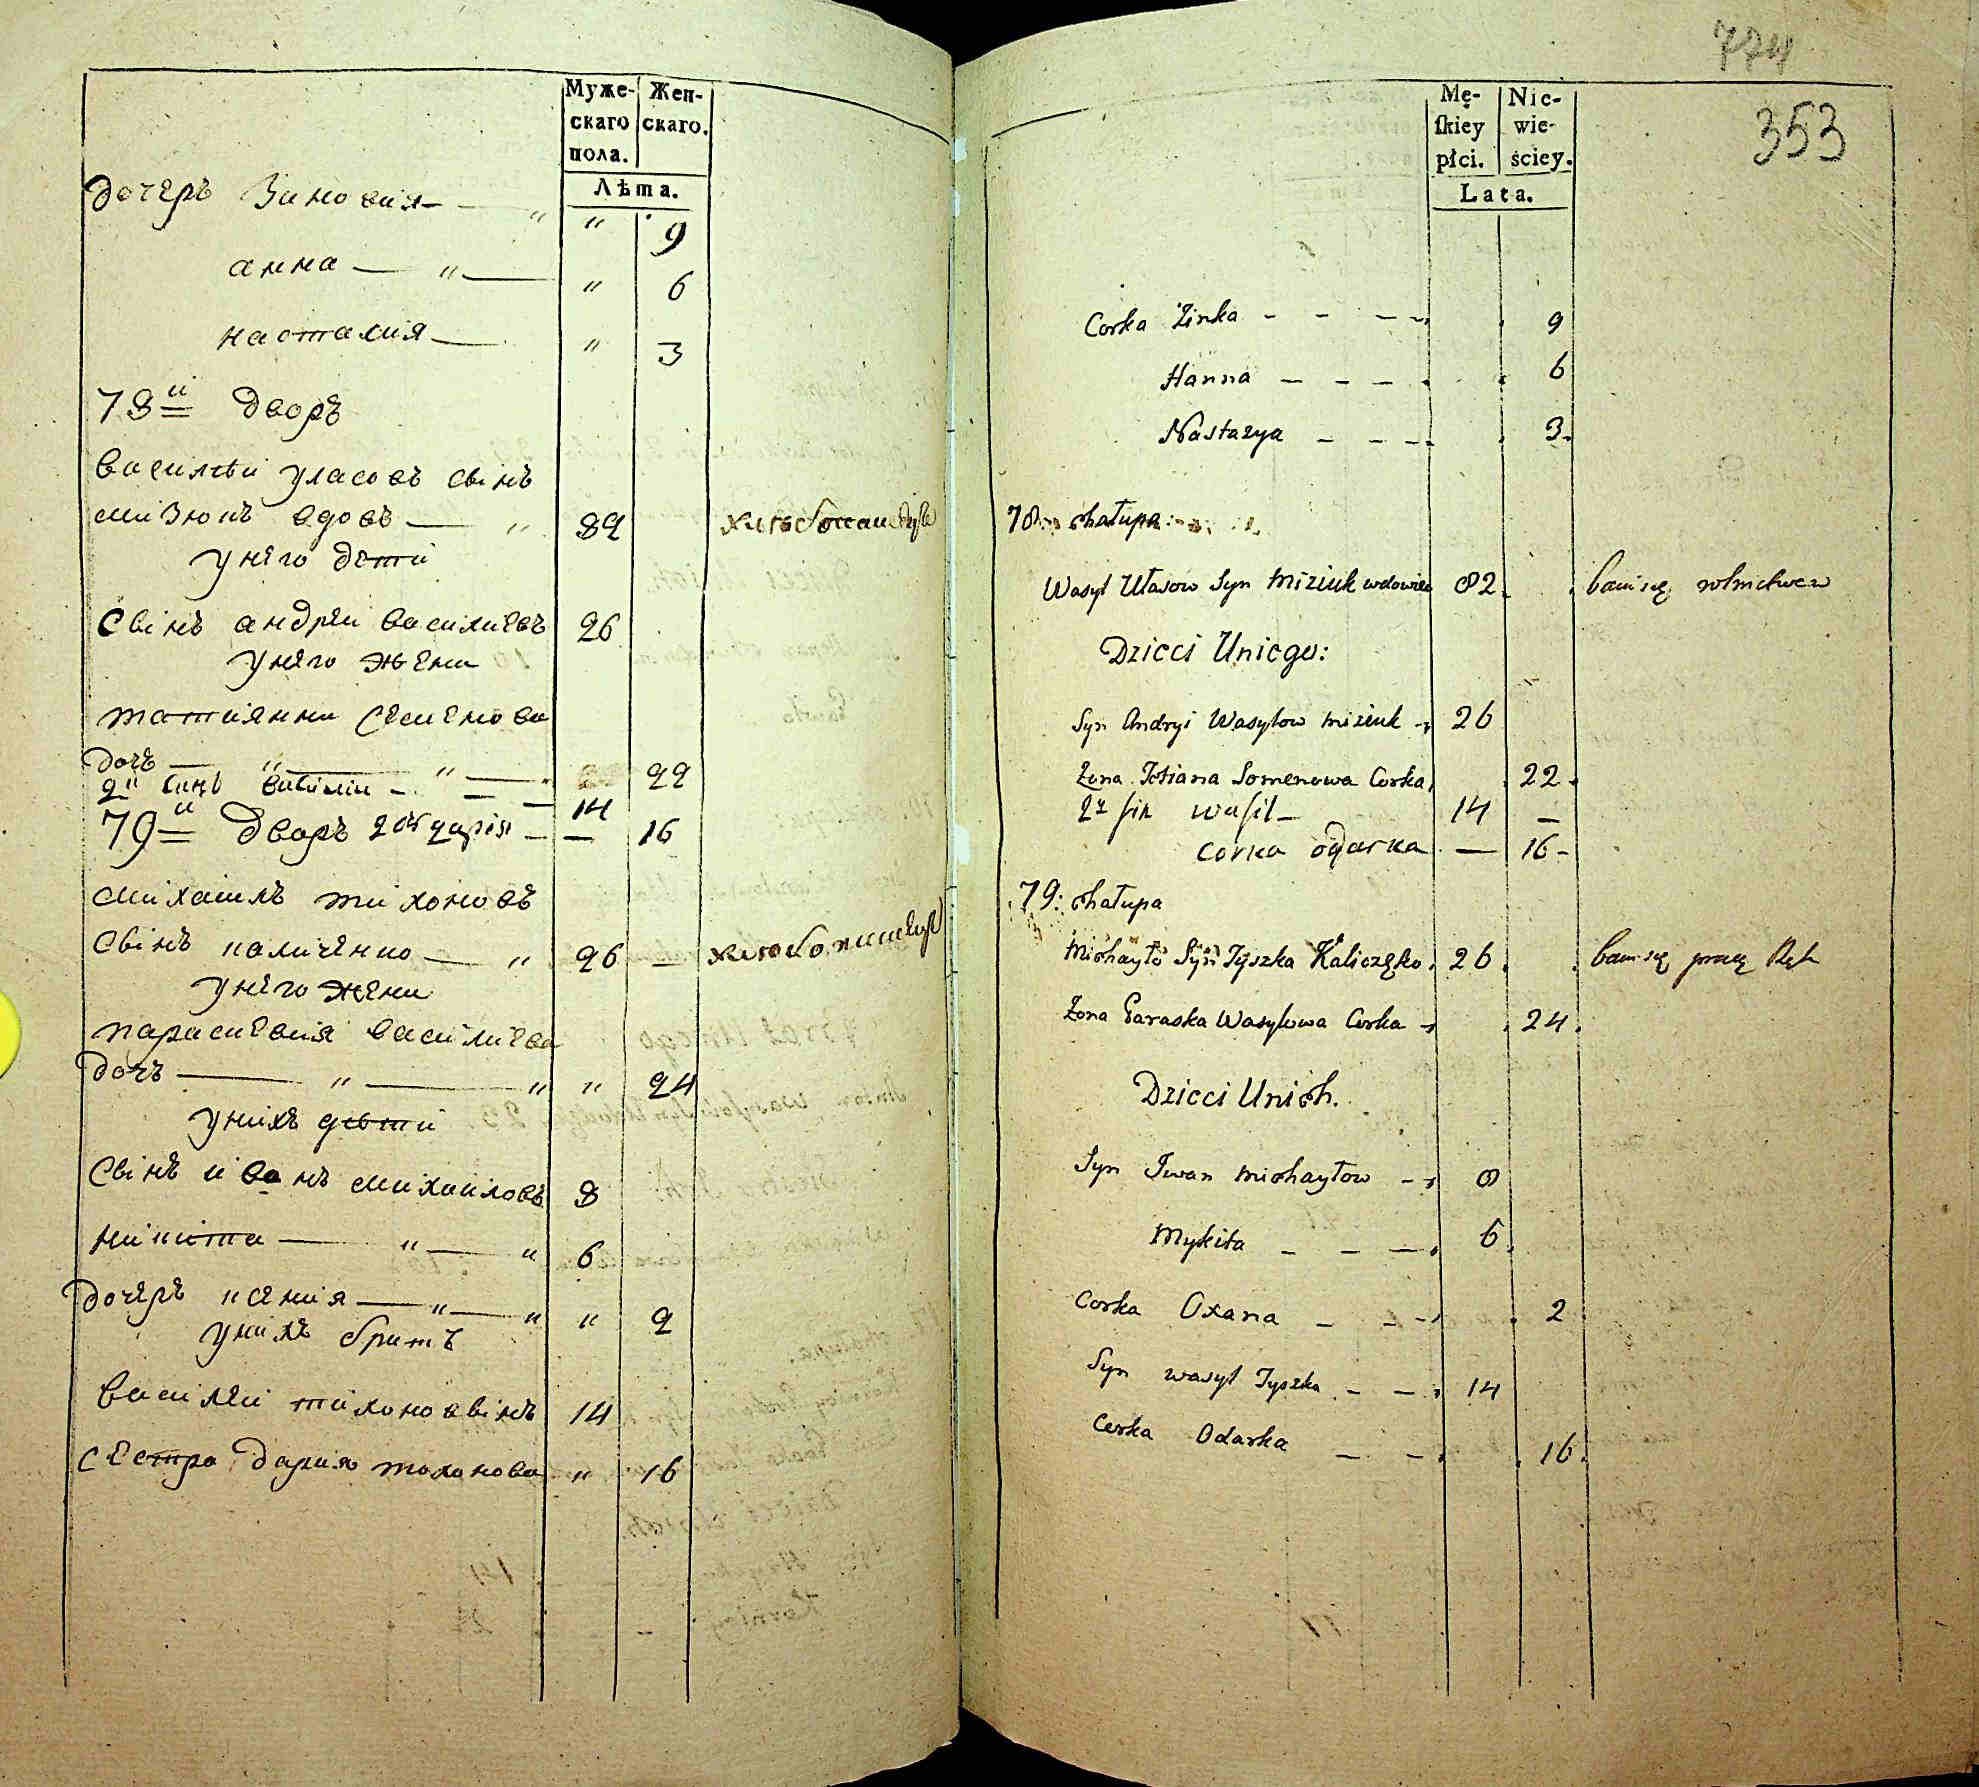 Муже-
скаго
пола.
Жен-
скаго.
Лѣта.
дочерь Зиновия — " " 9
анна — " — " 6
настасия — " 3
78й дворъ
Василѣй уласовъ свінъ
мизюкъ вдовъ — " 82 хлѣбопашецъ
у него дети
Свінъ андрѣй василиевъ 26
у него жена
татиянна семенова
дочь — " — " — 22
2й синъ василий — — — 14
79й дворъ 2 дочь дарія — — 16
михаилъ тихоновъ
свінъ каличенко — " 26 — хлѣбопашецъ
у него жена
парасцевия василиева
дочь — " — " " 24
у нихъ дѣти
Свінъ иванъ михаиловъ 8
никита — " — " 6
дочерь ксения — " — " " 2
у нихъ братъ
василей тихоно свінъ 14
сестра дария тихонова " 16
774
353
Mę-
skiey
płci.
Nie-
wie-
ściey.
Lata.
Corka Zinka - - - - 9
Hanna - - - 6
Nastazya - - - 3.
78 chałupa
Wasyl Ułasow Syn Miziuk wdowiec 82. bawi się rolnictwem
Dzieci Uniego:
Syn Andryi Wasylow miziuk - 26
Zona Tatiana Somenowa Corka 22.
2у sin wasil - 14 —
Corka odarka — 16 -
79: chałupa
Michayło Syn Tyszka Kaliczęko. 26. bawi się pracą Rąk
Zona Paraska Wasylowa Corka - 24.
Dzieci Unich.
Syn Iwan michayłow - 8
Mykita - - - 6.
Corka Oxana - - - 2
Syn wasyl Tyszka - - 14
Corka Odarka - - 16.